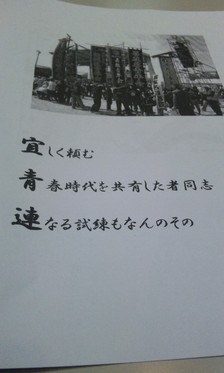 宜しく頼む
青春時代を共有した者同志
連なる試練もなんのその